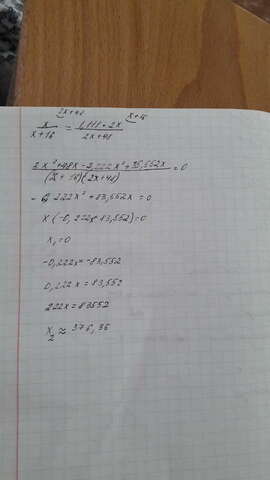 2x+48 x+16
x/(x+16) = (1,111 · 2x)/(2x+48)
(2x² + 48x - 2,222x² + 35,552x)/((x+16)(2x+48)) = 0
-0,222x² + 83,552x = 0
x(-0,222x + 83,552) = 0
x₁ = 0
-0,222x = -83,552
0,222x = 83,552
222x = 83552
x₂ ≈ 376,36